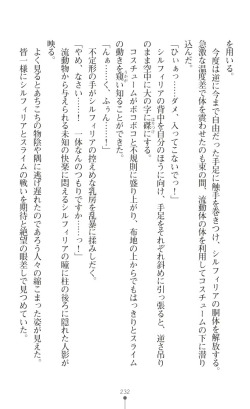 を用いる。
今度は逆に今まで自由だった手足に触手を巻きつけ、シルフィリアの胴体を解放する。
急激な温度差で体を震わせたのも束の間、流動体の体を利用してコスチュームの下に潜り
込んだ。
「ひぃぁっ……ダメ、入ってこないでっ！」
シルフィリアの背中を自分のほうに向け、手足をそれぞれ斜めに引っ張ると、逆さ吊り
のまま空中に大の字に磔にする。
コスチュームがボコボコと不規則に盛り上がり、布地の上からでもはっきりとスライム
の動きを窺い知ることができた。
「んぁ……く、ふぅん……！」
不定形の手がシルフィリアの控えめな乳房を乱暴に揉みしだく。
「やめ、なさい……！　一体なんのつもりですか……っ！」
流動物から与えられる未知の快楽に悶えるシルフィリアの瞳に柱の後ろに隠れた人影が
映る。
よく見るとあちこちの物陰や隅に逃げ遅れたのであろう人々の縮こまった姿が見えた。
皆一様にシルフィリアとスライムの戦いを期待と絶望の眼差しで見つめていた。
232